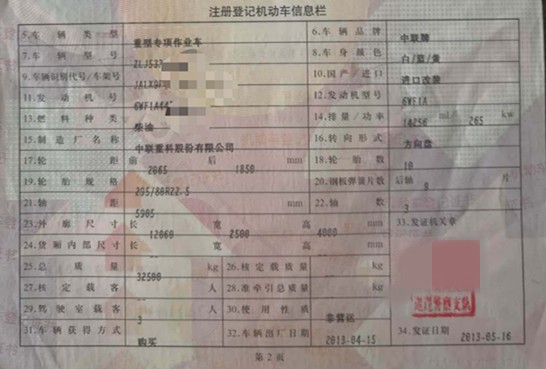 注册登记机动车信息栏
5.车辆类型 重型专项作业车 6.车辆品牌 中联牌
7.车辆型号 ZLJ537 8.车身颜色 白/蓝/黄
9.车辆识别代号/车架号 JALX9F 10.国产/进口 进口改装
11.发动机号 6WF1A44 12.发动机型号 6WF1A
13.燃料种类 柴油 14.排量/功率 14256 ml/ 265 kw
15.制造厂名称 中联重科股份有限公司 16.转向形式 方向盘
17.轮距 前 2065 后 1850 mm 18.轮胎数 10
19.轮胎规格 295/80R22.5 20.钢板弹簧片数 后轴 9 片
21.轴距 5905 mm 22.轴数 3
23.外廓尺寸 长 12060 宽 2500 高 4000 mm 33.发证机关章
24.货厢内部尺寸 长 宽 高 mm
25.总质量 32500 kg 26.核定载质量 kg
27.核定载客 人 28.准牵引总质量 kg
29.驾驶室载客 3 人 30.使用性质 非营运
31.车辆获得方式 购买 32.车辆出厂日期 2013-04-15 34.发证日期 2013-05-16
第2页